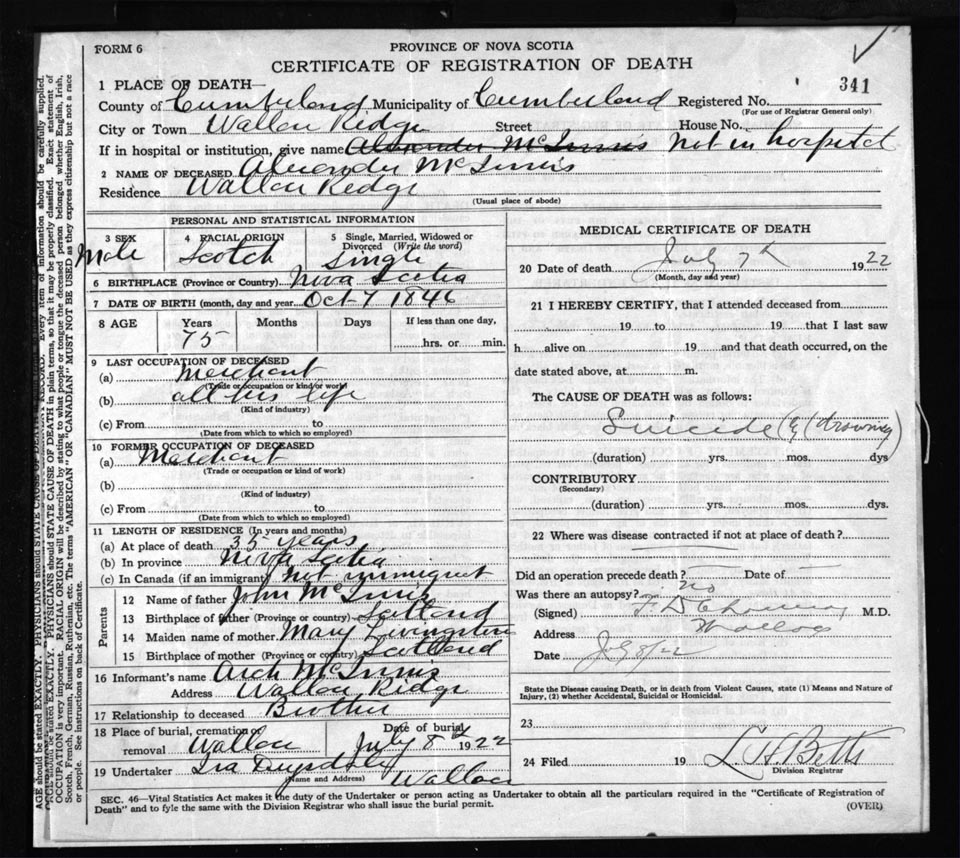 FORM 6
PROVINCE OF NOVA SCOTIA
CERTIFICATE OF REGISTRATION OF DEATH
341
1 PLACE OF DEATH—
County of Cumberland Municipality of Cumberland Registered No.
(For use of Registrar General only)
City or Town Wallace Ridge Street House No.
If in hospital or institution, give name Alexander McInnis Not in hospital
2 NAME OF DECEASED Alexander McInnis
Residence Wallace Ridge
(Usual place of abode)
PERSONAL AND STATISTICAL INFORMATION
3 SEX 4 RACIAL ORIGIN 5 Single, Married, Widowed or
Divorced (Write the word)
Male Scotch Single
6 BIRTHPLACE (Province or Country) Nova Scotia
7 DATE OF BIRTH (month, day and year) Oct 7 1846
8 AGE Years Months Days If less than one day,
75 hrs. or min.
9 LAST OCCUPATION OF DECEASED
(a) Merchant
(Trade or occupation or kind of work)
(b) all his life
(Kind of industry)
(c) From to
(Date from which to which so employed)
10 FORMER OCCUPATION OF DECEASED
(a) Merchant
(Trade or occupation or kind of work)
(b)
(Kind of industry)
(c) From to
(Date from which to which so employed)
11 LENGTH OF RESIDENCE (In years and months)
(a) At place of death 35 years
(b) In province Nova Scotia
(c) In Canada (if an immigrant) Not immigrant
Parents
12 Name of father John McInnis
13 Birthplace of father (Province or country) Scotland
14 Maiden name of mother Mary Livingstone
15 Birthplace of mother (Province or country) Scotland
16 Informant's name Arch McInnis
Address Wallace Ridge
17 Relationship to deceased Brother
18 Place of burial, cremation or removal Wallace
Date of burial July 8th 1922
19 Undertaker Ira Drysdale Wallace
(Name and Address)
MEDICAL CERTIFICATE OF DEATH
20 Date of death July 7th 1922
(Month, day and year)
21 I HEREBY CERTIFY, that I attended deceased from
19 to 19 that I last saw
h alive on 19 and that death occurred, on the
date stated above, at m.
The CAUSE OF DEATH was as follows:
Suicide (by drowning)
(duration) yrs. mos. dys
CONTRIBUTORY
(Secondary)
(duration) yrs. mos. dys.
22 Where was disease contracted if not at place of death?
Did an operation precede death? Date of
Was there an autopsy? No
(Signed) M.D.
Address Wallace
Date July 8/22
State the Disease causing Death, or in death from Violent Causes, state (1) Means and Nature of
Injury, (2) whether Accidental, Suicidal or Homicidal.
23
24 Filed 19 L. H. Betts
Division Registrar
SEC. 46—Vital Statistics Act makes it the duty of the Undertaker or person acting as Undertaker to obtain all the particulars required in the "Certificate of Registration of
Death" and to fyle the same with the Division Registrar who shall issue the burial permit.
(OVER)
AGE should be stated EXACTLY. PHYSICIANS should STATE CAUSE OF DEATH
Every item of information should be carefully supplied.
PHYSICIANS should STATE CAUSE OF DEATH in plain terms, so that it may be properly classified. Exact statement of
OCCUPATION is very important. RACIAL ORIGIN will be described by stating to what people or tongue the deceased person belonged whether English, Irish,
Scotch, French, German, Russian, Ruthenian, etc. The terms "AMERICAN" OR "CANADIAN" MUST NOT BE USED as they express citizenship but not a race
or people. See instructions on back of Certificate.